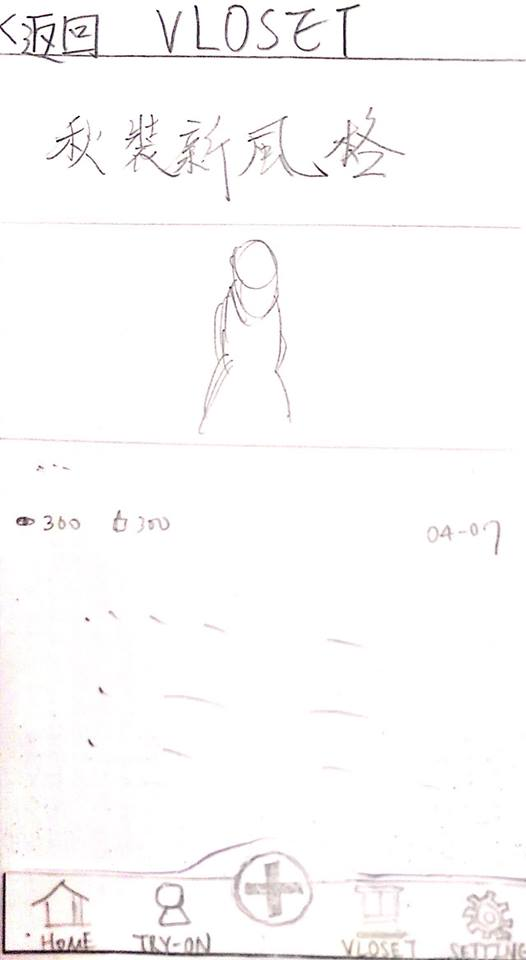 <返回 VLOSET
秋裝新風格
...
300 300 04-07
HOME TRY-ON VLOSET SETTING